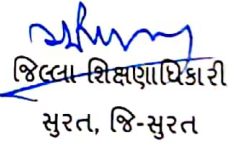 જિલ્લા શિક્ષણાધિકારી
સુરત, જિ-સુરત